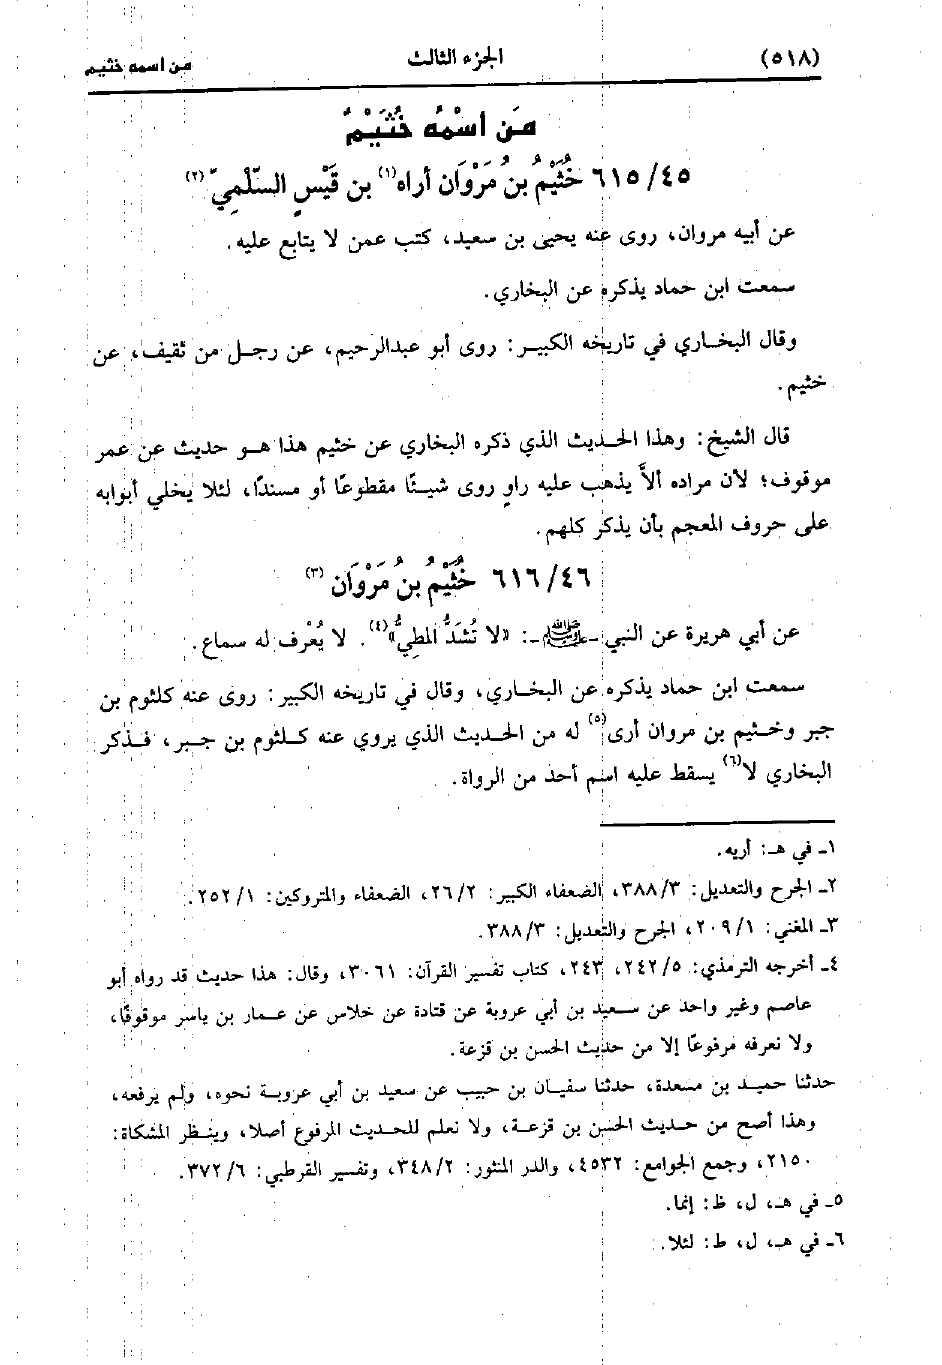 (٥١٨) الجزء الثالث من اسمه خثيم
مَن اسْمُه خُثَيْمٌ
٦١٥/٤٥ خُثَيْمُ بن مَرْوَان أراه(١) بن قَيْسٍ السّلَمِيّ(٢)
عن أبيه مروان، روى عنه يحيى بن سعيد، كتب عمن لا يتابع عليه.
سمعت ابن حماد يذكره عن البخاري.
وقال البخاري في تاريخه الكبير: روى أبو عبدالرحيم، عن رجل من ثقيف، عن
خثيم.
قال الشيخ: وهذا الحديث الذي ذكره البخاري عن خثيم هذا هو حديث عن عمر
موقوف؛ لأن مراده ألاَّ يذهب عليه راوٍ روى شيئًا مقطوعًا أو مسندًا، لئلا يخلي أبوابه
على حروف المعجم بأن يذكر كلهم.
٦١٦/٤٦ خُثَيْمُ بنُ مَرْوَان(٣)
عن أبي هريرة عن النبي -ﷺ-: «لا تُشَدُّ المَطِيُّ»(٤). لا يُعْرف له سماع.
سمعت ابن حماد يذكره عن البخاري، وقال في تاريخه الكبير: روى عنه كلثوم بن
جبر وخثيم بن مروان أرى(٥) له من الحديث الذي يروي عنه كلثوم بن جبر، فذكر
البخاري لا(٦) يسقط عليه اسم أحد من الرواة.
١ـ في هـ: أريه.
٢ـ الجرح والتعديل: ٣٨٨/٣، الضعفاء الكبير: ٢٦/٢، الضعفاء والمتروكين: ٢٥٢/١.
٣ـ المغني: ٢٠٩/١، الجرح والتعديل: ٣٨٨/٣.
٤ـ أخرجه الترمذي: ٢٤٢/٥، ٢٤٣، كتاب تفسير القرآن: ٣٠٦١، وقال: هذا حديث قد رواه أبو
عاصم وغير واحد عن سعيد بن أبي عروبة عن قتادة عن خلاس عن عمار بن ياسر موقوفًا،
ولا نعرفه مرفوعًا إلا من حديث الحسن بن قزعة.
حدثنا حميد بن مسعدة، حدثنا سفيان بن حبيب عن سعيد بن أبي عروبة نحوه، ولم يرفعه،
وهذا أصح من حديث الحسن بن قزعة، ولا نعلم للحديث المرفوع أصلا، وينظر المشكاة:
٢١٥٠، وجمع الجوامع: ٤٥٣٢، والدر المنثور: ٣٤٨/٢، وتفسير القرطبي: ٣٧٢/٦.
٥ـ في هـ، ل، ظ: إنما.
٦ـ في هـ، ل، ط: لئلا.